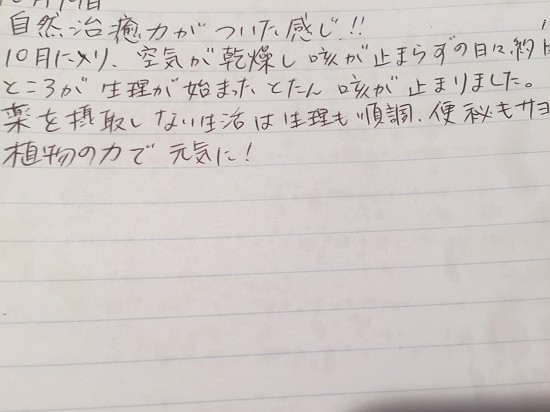 自然治癒力がついた感じ!!
10月に入り、空気が乾燥し咳が止まらずの日に約
ところが生理が始まったとたん咳が止まりました。
薬を摂取しない生活は生理も順調、便秘もサヨ
植物の力で元気に!